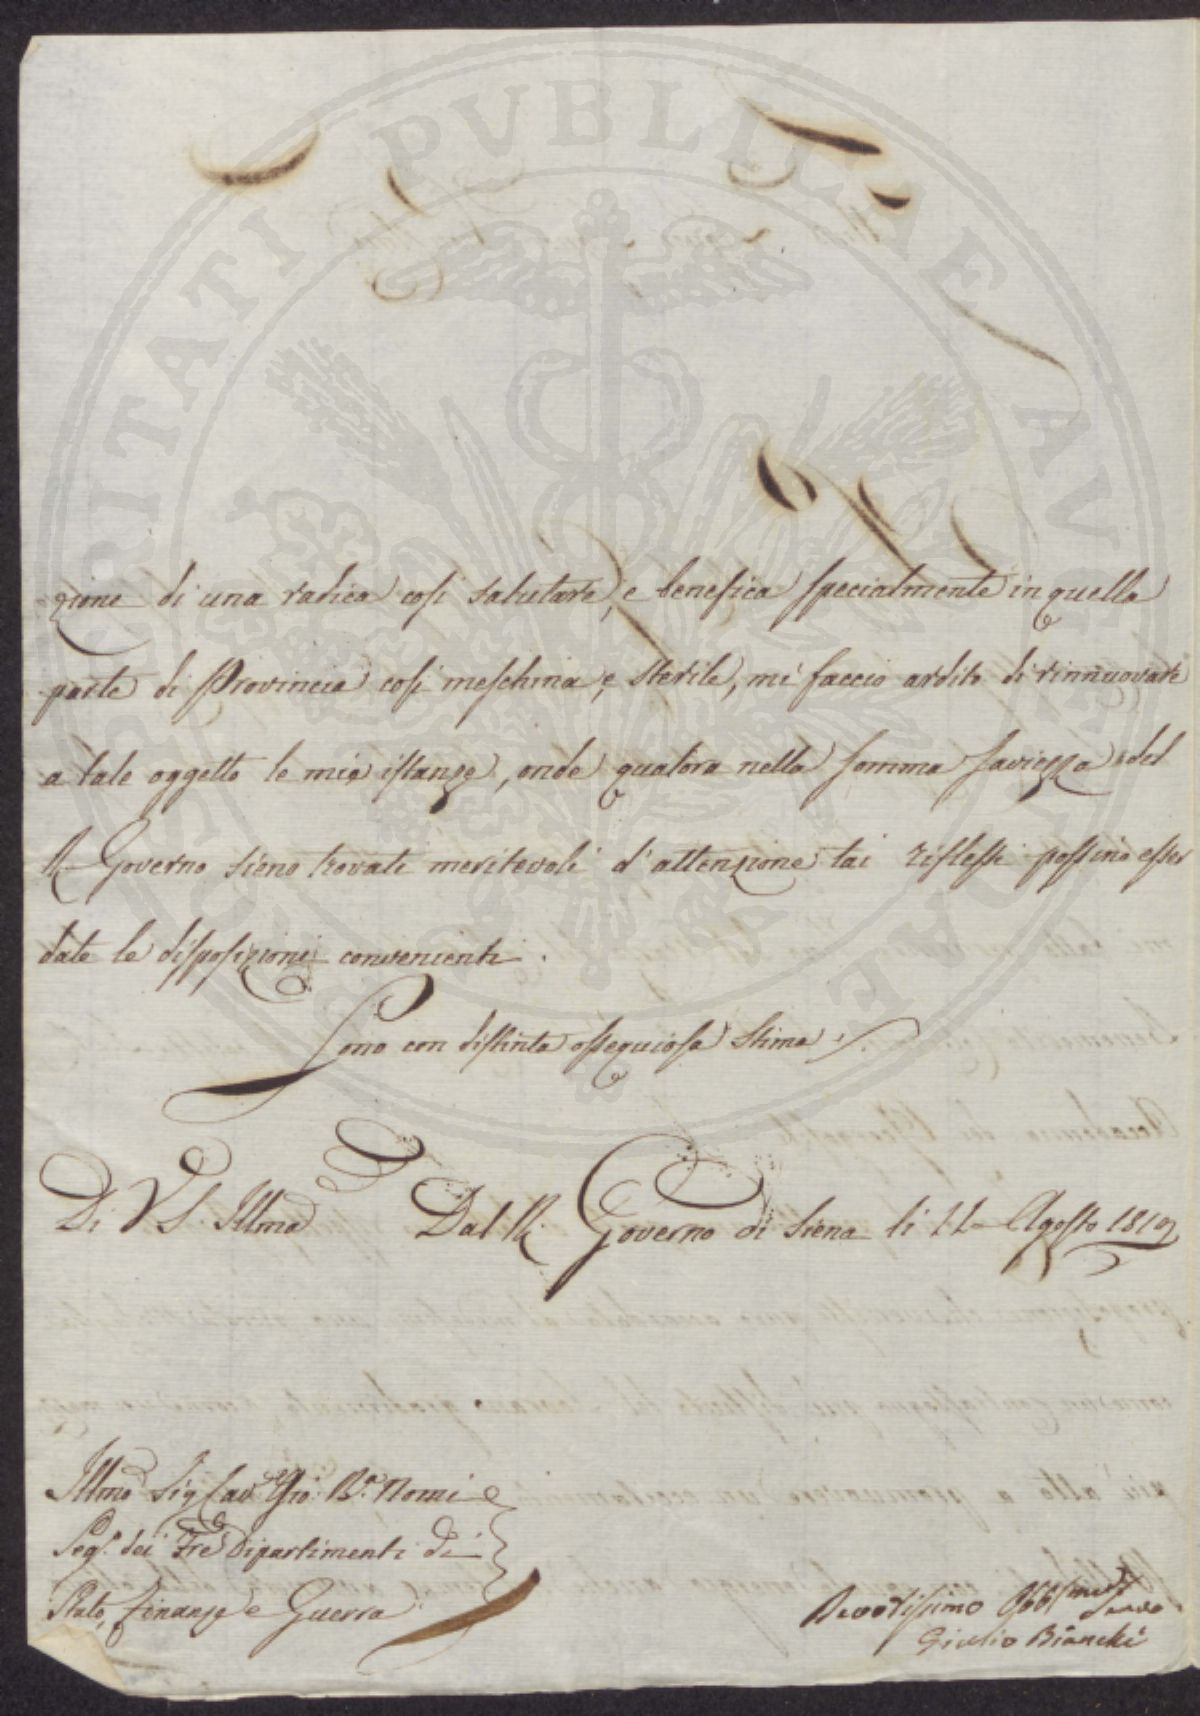 PROSPERITATI PVBLICAE AVGENDAE
zione di una radica così salutare, e benefica specialmente in quella
parte di Provincia così meschina, e sterile, mi faccio ardito di rinnuovare
a tale oggetto le mie istanze, onde qualora nella somma saviezza del
R. Governo sieno trovati meritevoli d'attenzione tai riflessi possino esser
date le disposizioni convenienti.
Sono con distinta ossequiosa stima
Di V S. Illma Dal R. Governo di Siena li 11 Agosto 1819
Illmo Sig Cav Gio. Ba. Nomi
Seg. dei Tre Dipartimenti di
Stato, Finanze e Guerra
Devotissimo Obbl. Servo
Giulio Bianchi